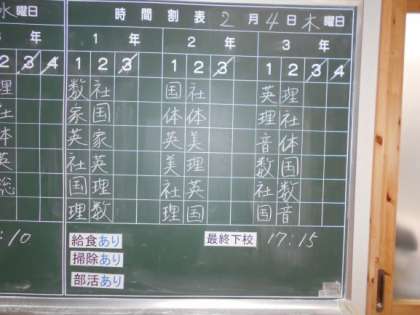 水曜日 時間割表 2月4日木曜日
年 1年 2年 3年
2 3 4 1 2 3 1 2 3 1 2 3 4
理 数 社 国 社 英 理
社 家 国 体 体 理 社
体 英 家 英 美 音 体
英 社 英 美 理 数 国
総 国 理 社 英 社 数
理 数 理 国 国 音
:10 給食あり 最終下校 17:15
掃除あり
部活あり